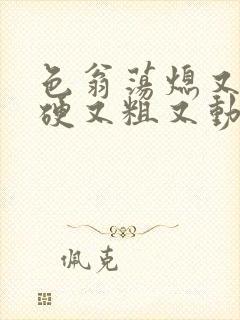 色翁荡熄又
硬又粗又動
佩克